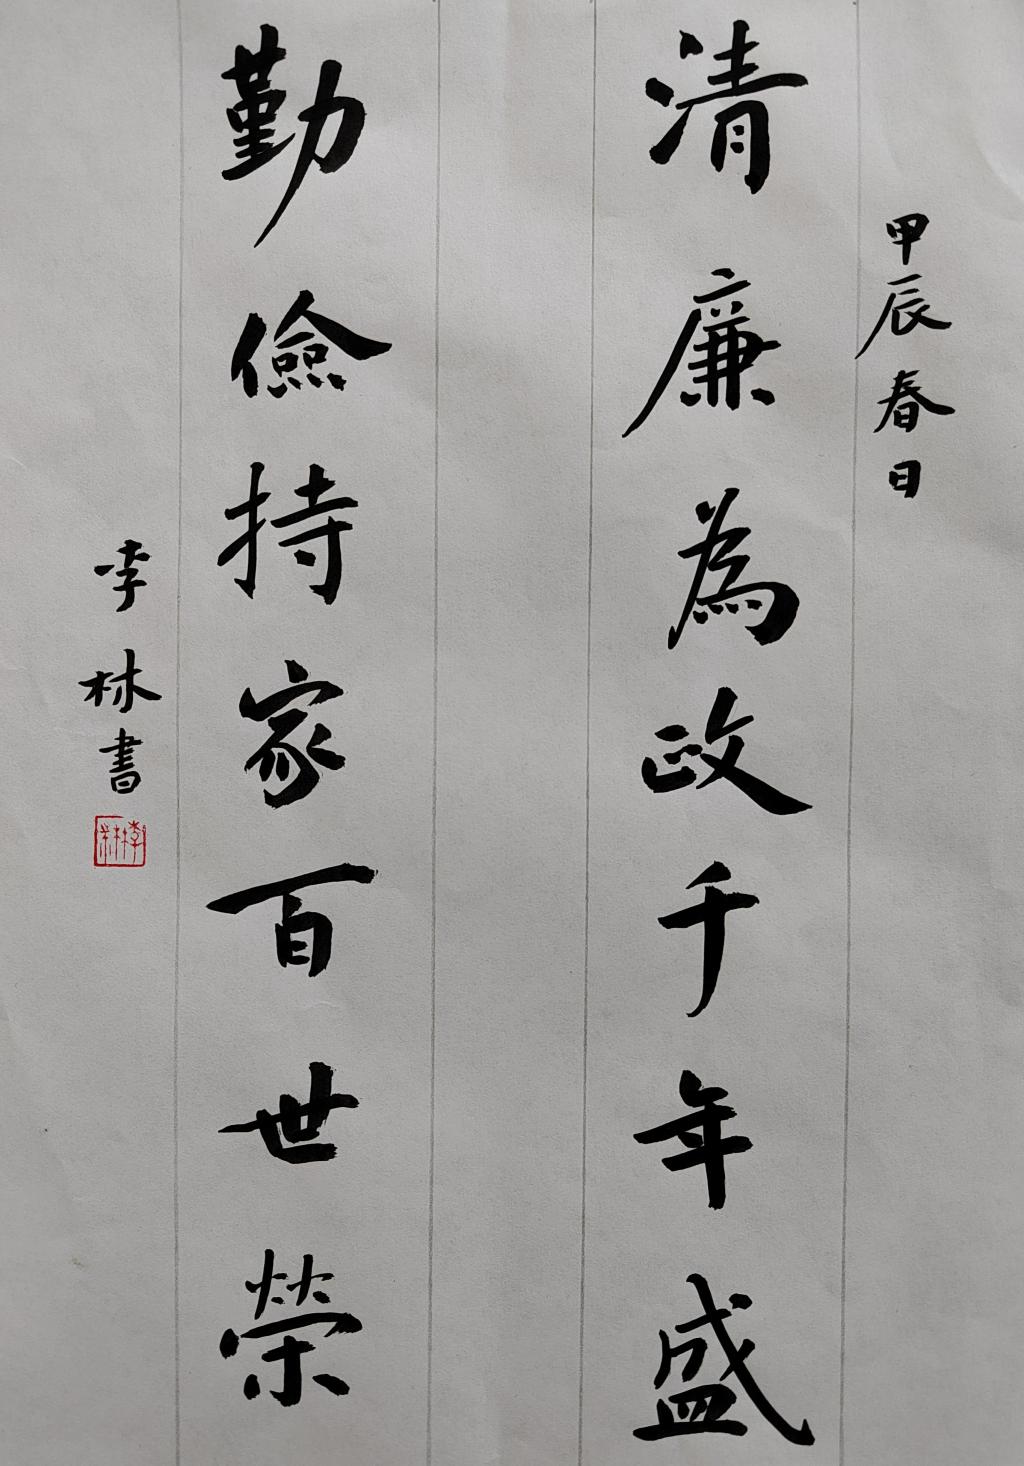 甲辰春日
清廉為政千年盛
勤儉持家百世榮
李林書
李林